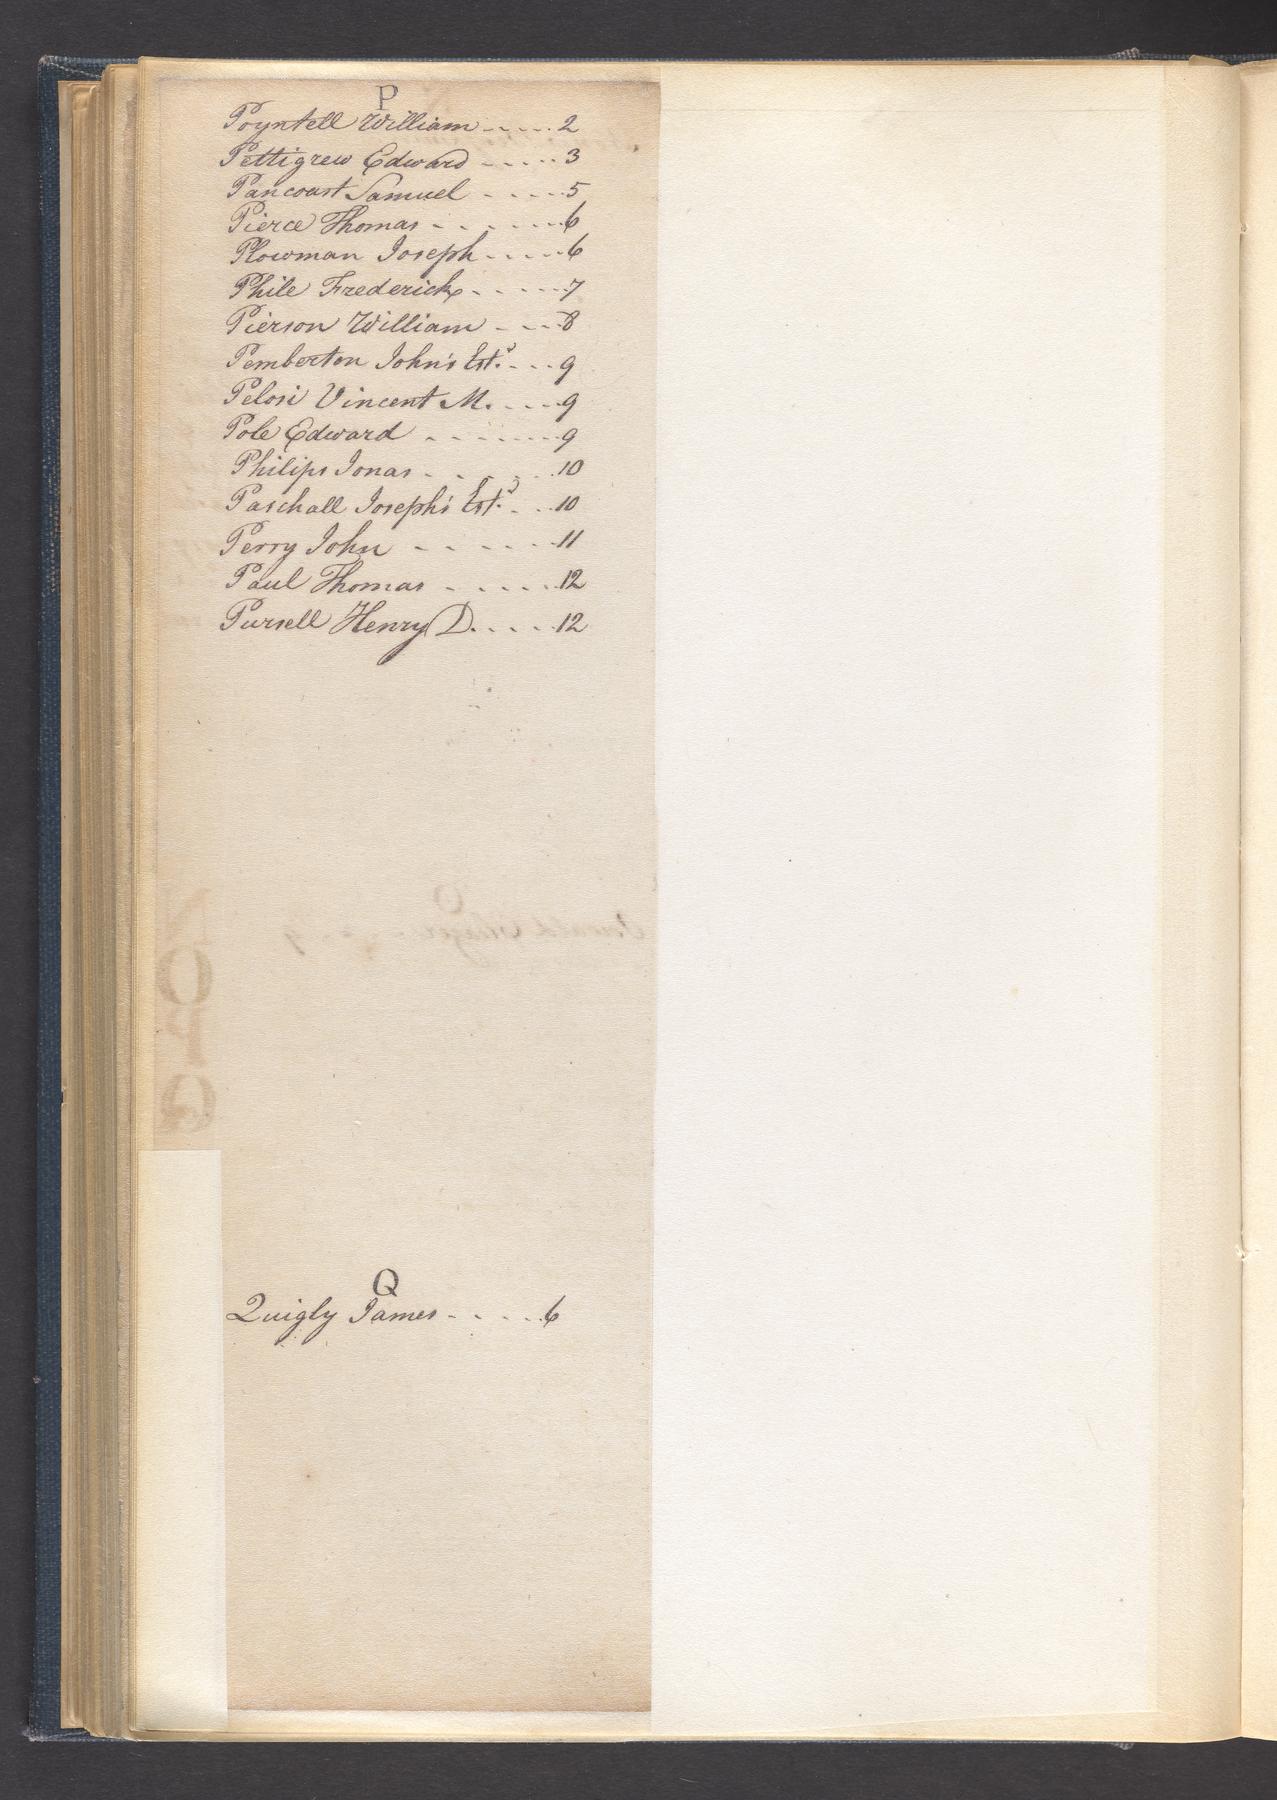 P
Poyntell William - - - - 2
Pettigrew Edward - - - - - 3
Pancoast Samuel - - - - 5
Pierce Thomas - - - - - - 6
Plowman Joseph - - - - 6
Phile Frederick - - - - - 7
Pierson William - - - 8
Pemberton John's Estᵈ. - - - 9
Pelosi Vincent M. - - - 9
Pole Edward - - - - - - - 9
Philips Jonas - - - - - 10
Paschall Joseph's Estᵈ. - - - 10
Perry John - - - - - - 11
Paul Thomas - - - - - 12
Pursell Henry D. - - - - 12
N
O
P
Q
Q
Quigly James - - - - - 6